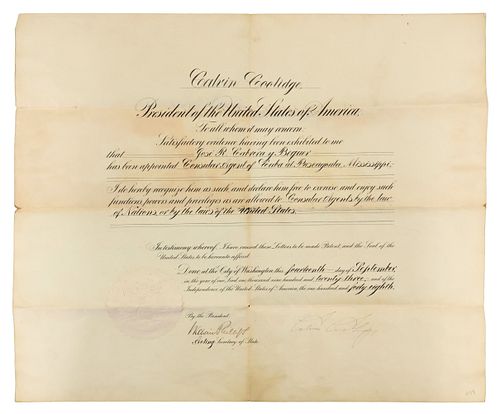 Calvin Coolidge,
President of the United States of America.
To all whom it may concern
Satisfactory evidence having been exhibited to me
that Jose R. Cabrera y Beguer
has been appointed Consular Agent of Cuba at Pascagoula, Mississippi
I do hereby recognize him as such and declare him free to exercise and enjoy such
functions, powers and privileges as are allowed to Consular Agents by the law
of Nations, or by the laws of the United States.
In testimony whereof, I have caused these Letters to be made Patent, and the Seal of the
United States to be hereunto affixed.
Done at the City of Washington this fourteenth day of September,
in the year of our Lord one thousand nine hundred and twenty three, and of the
Independence of the United States of America, the one hundred and forty eighth.
By the President:
William Phillips
Calvin Coolidge
Acting Secretary of State.